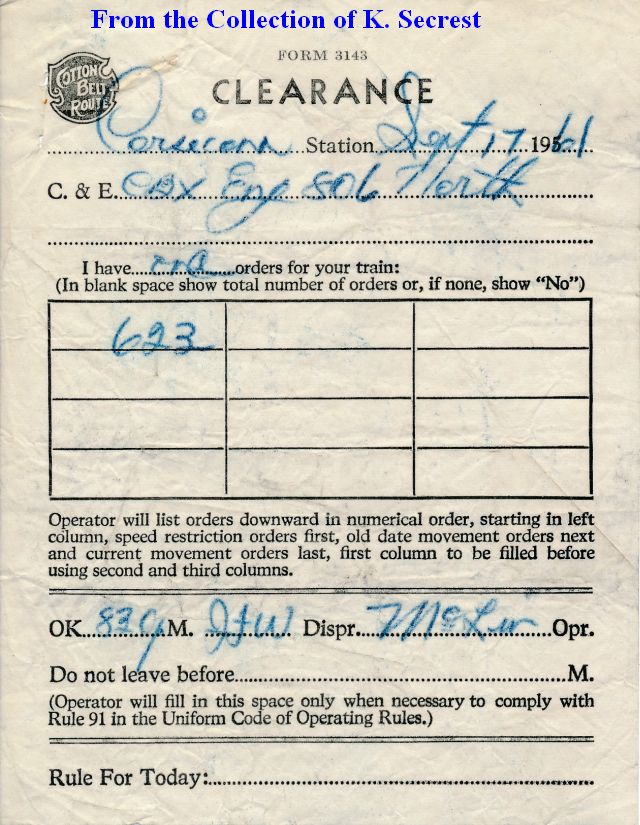 From the Collection of K. Secrest
FORM 3143
COTTON
BELT
ROUTE
CLEARANCE
Corsicana Station Sept 17 1961
C. & E. Eng 806 North
I have one orders for your train:
(In blank space show total number of orders or, if none, show “No”)
623
Operator will list orders downward in numerical order, starting in left
column, speed restriction orders first, old date movement orders next
and current movement orders last, first column to be filled before
using second and third columns.
OK M. Dispr. McLin Opr.
Do not leave before M.
(Operator will fill in this space only when necessary to comply with
Rule 91 in the Uniform Code of Operating Rules.)
Rule For Today: